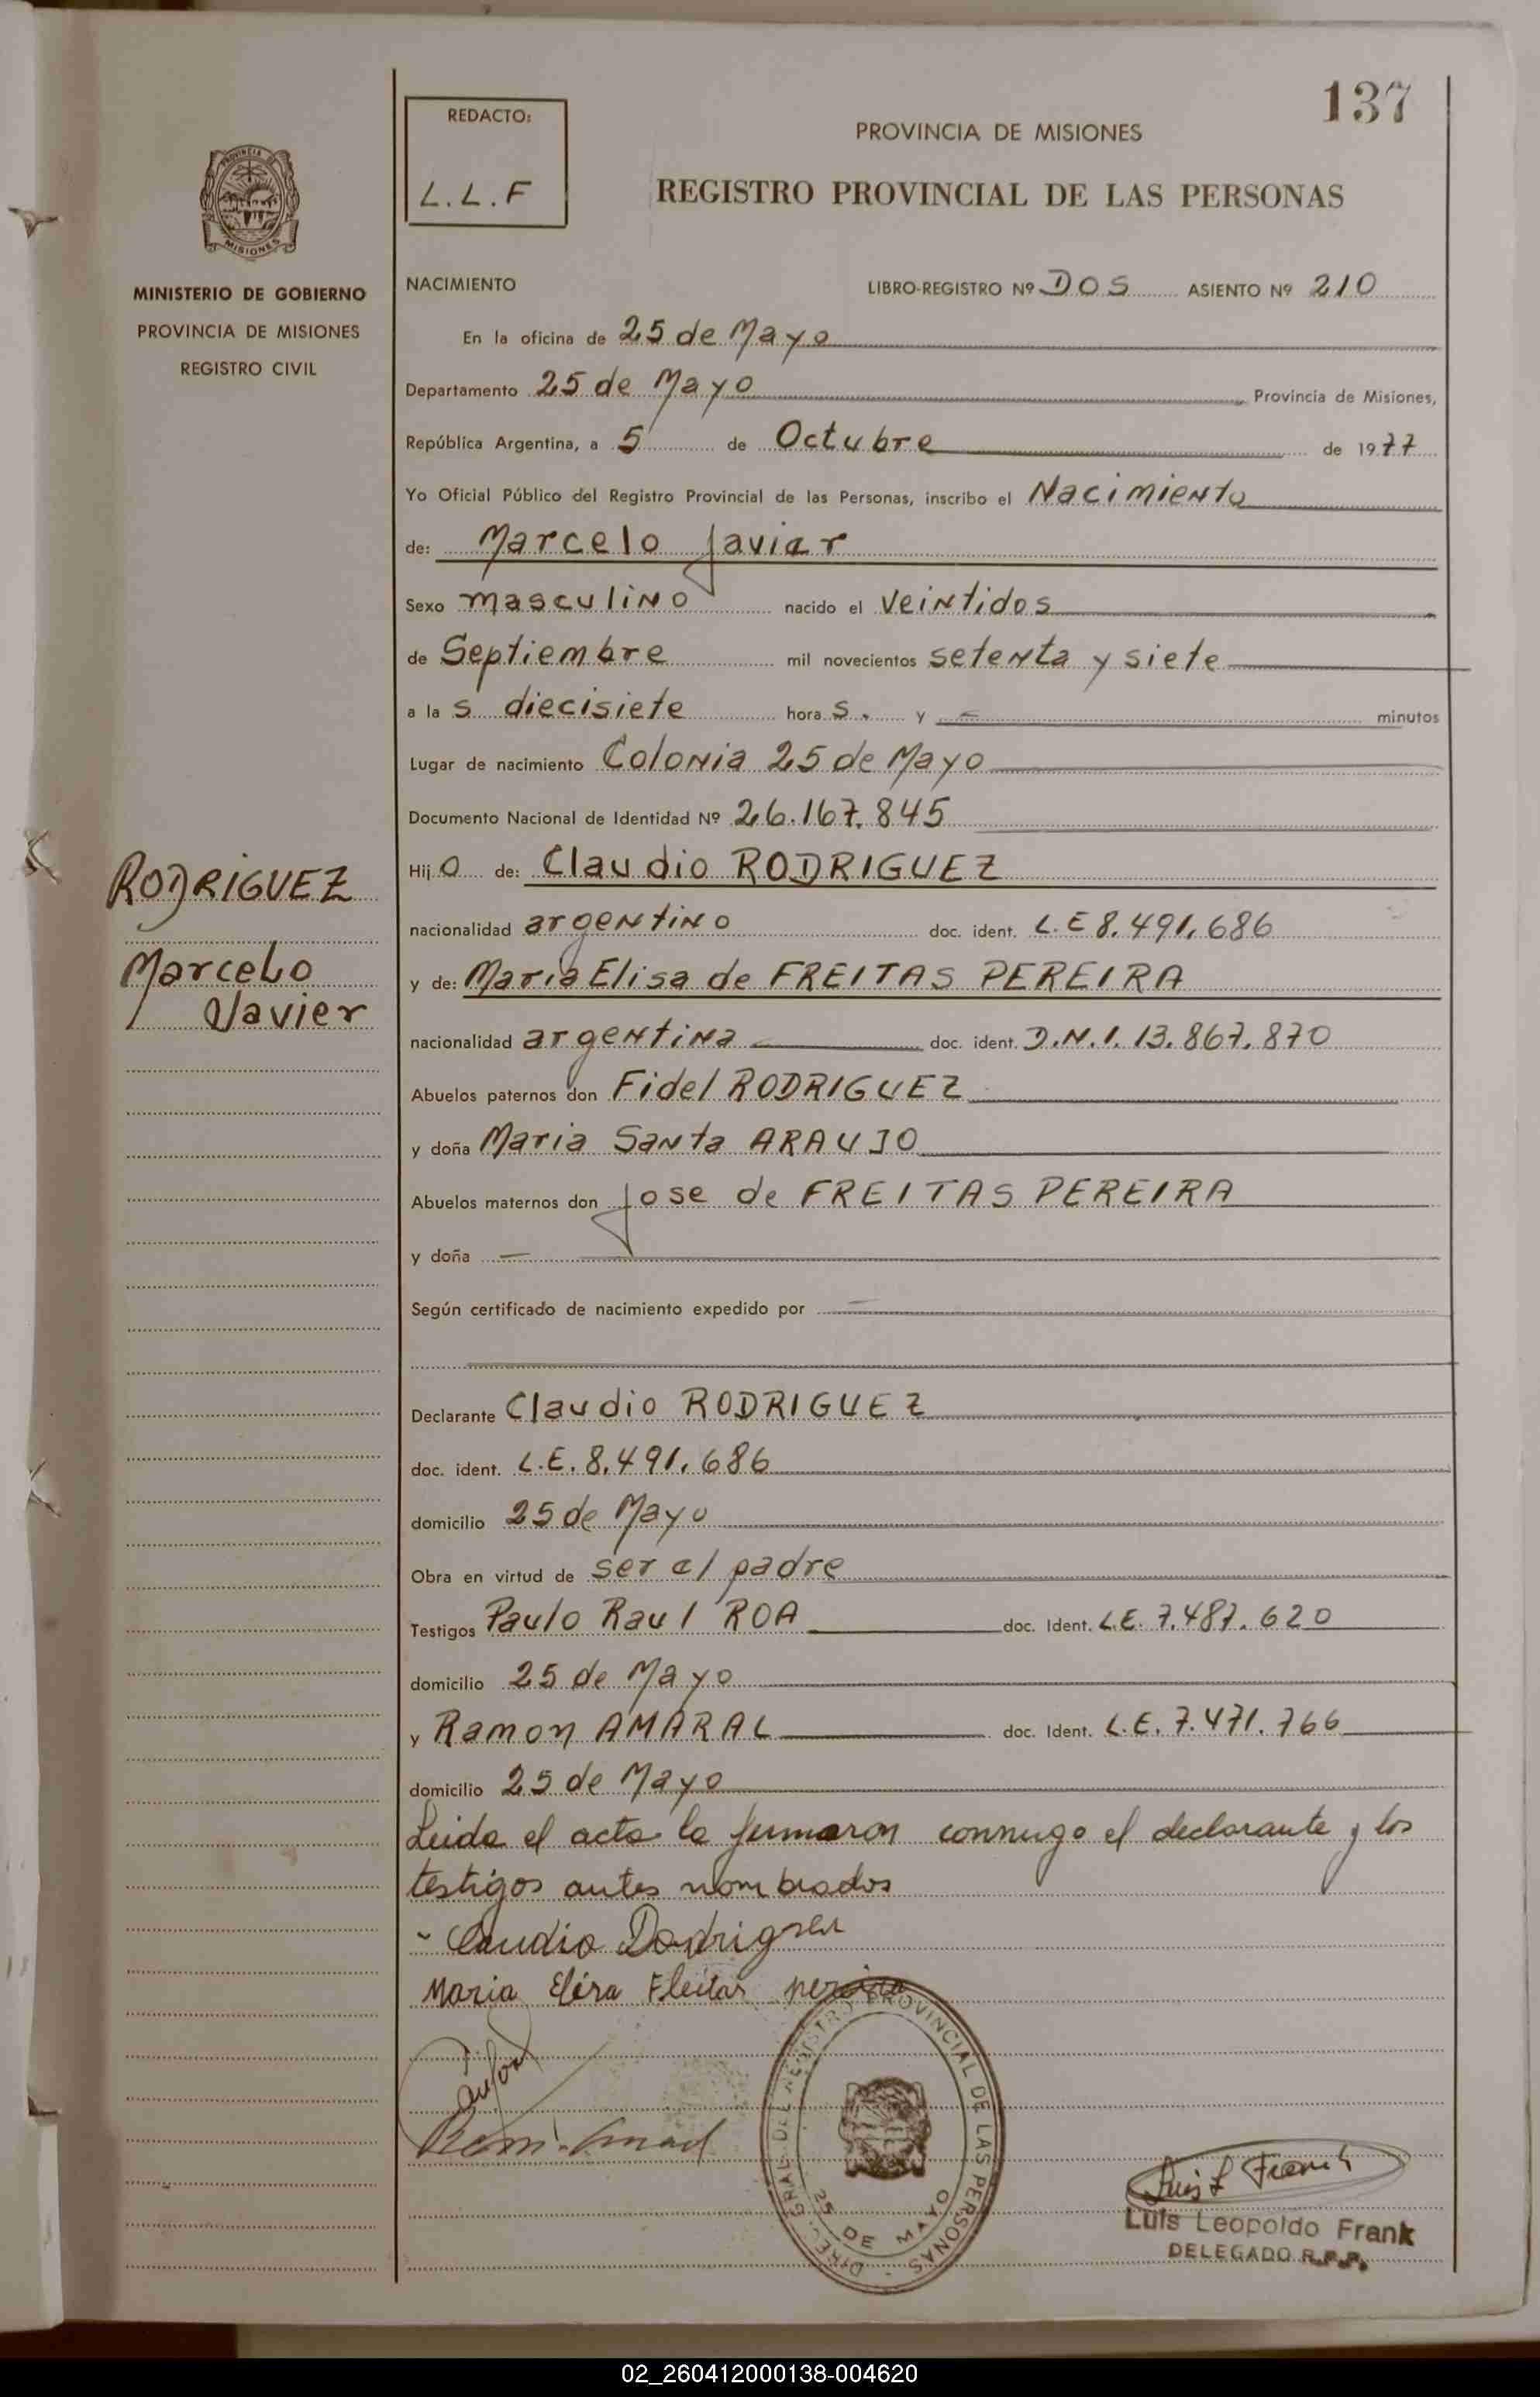 137
REDACTO:
L.L.F
PROVINCIA DE MISIONES
REGISTRO PROVINCIAL DE LAS PERSONAS
PROVINCIA DE
MISIONES
MINISTERIO DE GOBIERNO
PROVINCIA DE MISIONES
REGISTRO CIVIL
NACIMIENTO LIBRO-REGISTRO Nº DOS ASIENTO Nº 210
En la oficina de 25 de Mayo
Departamento 25 de Mayo Provincia de Misiones,
República Argentina, a 5 de Octubre de 1977
Yo Oficial Público del Registro Provincial de las Personas, inscribo el Nacimiento
de: Marcelo Javier
Sexo masculino nacido el veintidos
de Septiembre mil novecientos setenta y siete
a la s diecisiete hora s. y - minutos
Lugar de nacimiento Colonia 25 de Mayo
Documento Nacional de Identidad Nº 26.167.845
Hij o de: Claudio RODRIGUEZ
RODRIGUEZ
nacionalidad argentino doc. ident. L.E 8.491.686
Marcelo
Javier
y de: Maria Elisa de FREITAS PEREIRA
nacionalidad argentina doc. ident. D.N.I. 13.867.870
Abuelos paternos don Fidel RODRIGUEZ
y doña Maria Santa ARAUJO
Abuelos maternos don Jose de FREITAS PEREIRA
y doña -
Según certificado de nacimiento expedido por -
Declarante Claudio RODRIGUEZ
doc. ident. L.E. 8.491.686
domicilio 25 de Mayo
Obra en virtud de ser el padre
Testigos Paulo Raul ROA doc. Ident. L.E. 7.487.620
domicilio 25 de Mayo
y Ramon AMARAL doc. Ident. L.E. 7.471.766
domicilio 25 de Mayo
Leida el acta la firmaron conmigo el declarante y los
testigos antes nombrados
Claudio Rodriguez
Maria Elisa Fleitas pereira
DIREC. GRAL. DEL REGISTRO PROVINCIAL DE LAS PERSONAS
25 DE MAYO
Luis L Frank
Luis Leopoldo Frank
DELEGADO R.P.P.
02_260412000138-004620